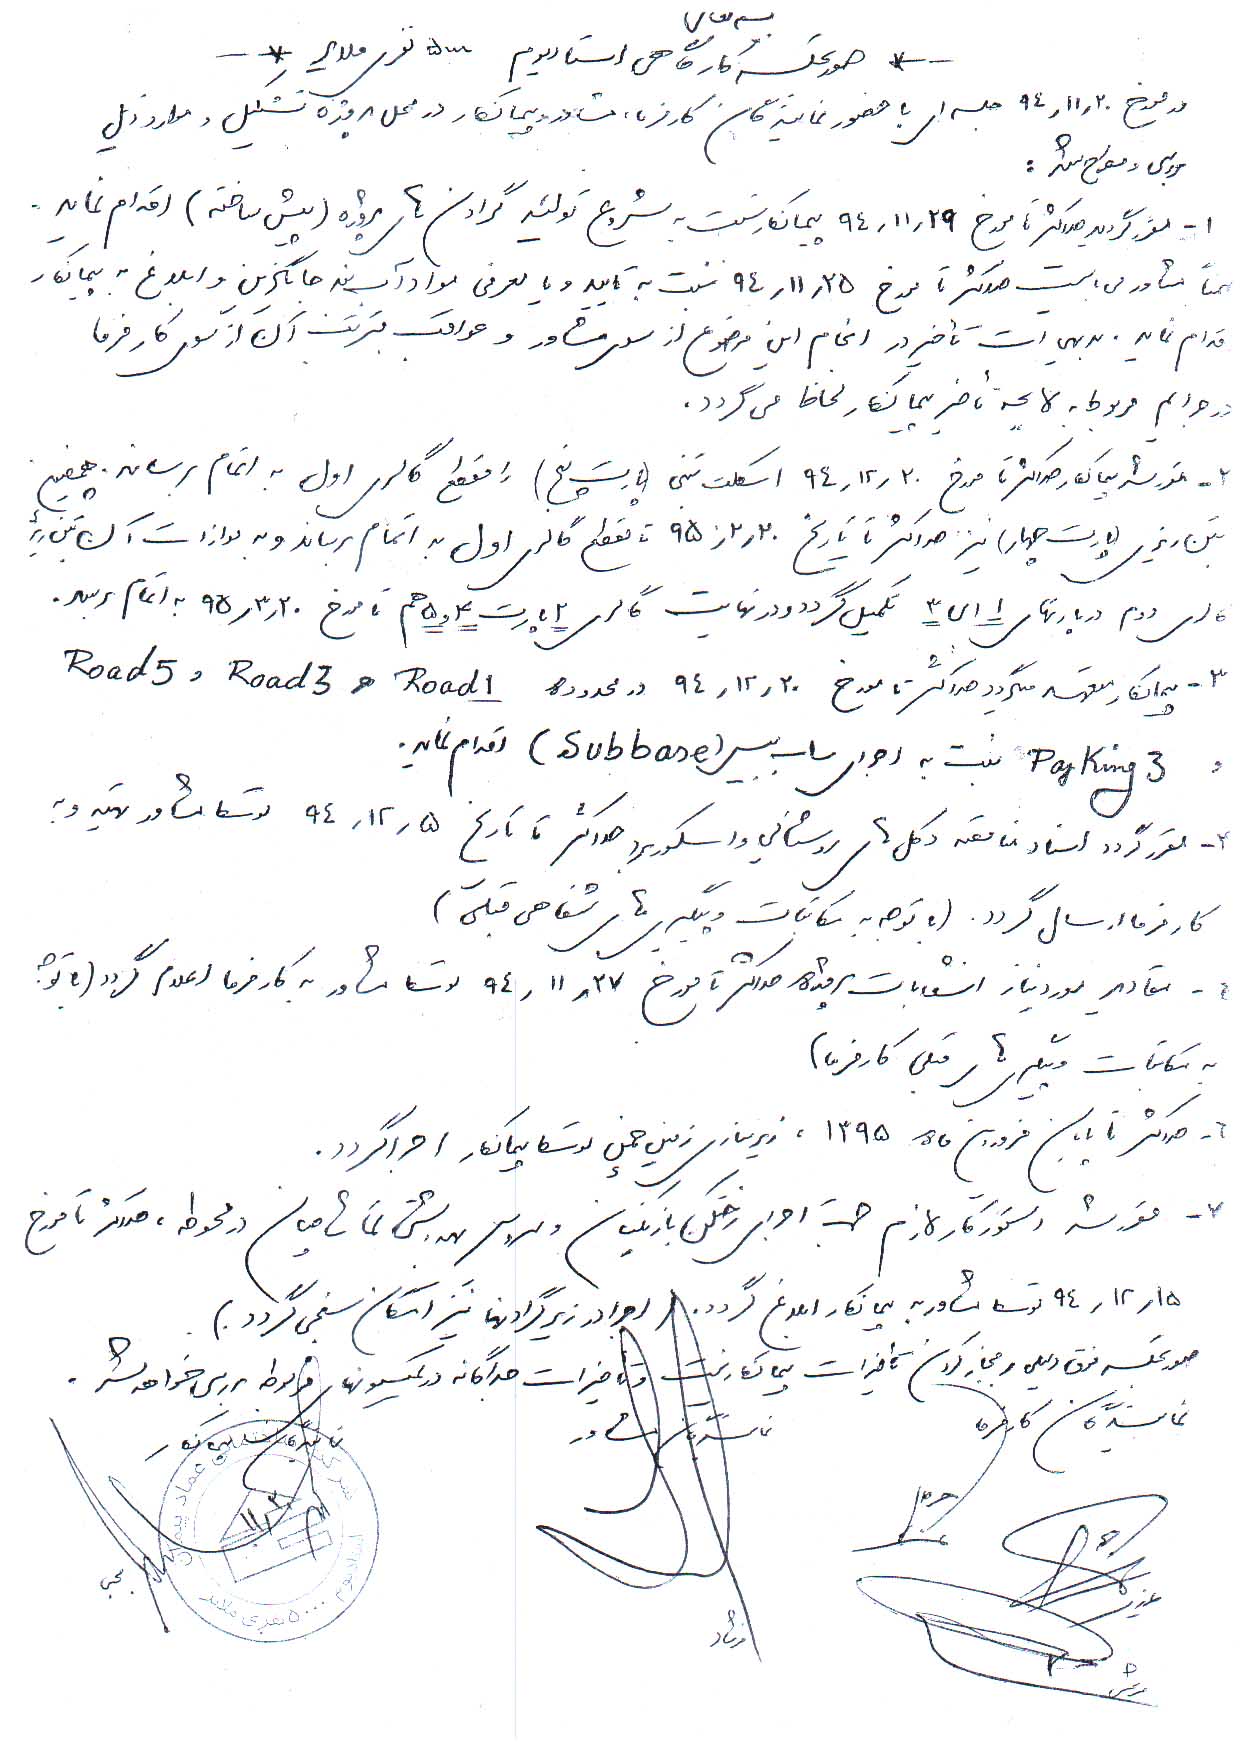 بسمه تعالی
صورتجلسه کارگاهی استادیوم ۵۰۰۰ نفری ملایر
در مورخ ۹۴٫۱۱٫۲۰ جلسه ای با حضور نمایندگان کارفرما، مشاور و پیمانکار در محل پروژه تشکیل و موارد ذیل
بررسی و مطرح شد :
۱- مقرر گردید حداکثر تا مورخ ۹۴٫۱۱٫۲۹ پیمانکار نسبت به شروع تولید گرادن های پروژه (پیش ساخته) اقدام نماید.
ضمناً مشاور می بایست حداکثر تا مورخ ۹۴٫۱۱٫۲۵ نسبت به تایید و یا معرفی مواد آب بند جایگزین و ابلاغ به پیمانکار
اقدام نماید. بدیهی است تأخیر در انجام این موضوع از سوی مشاور و عواقب مترتب آن از سوی کارفرما
در جرایم مربوط به لایحه تأخیر پیمانکار لحاظ می گردد.
۲- مقرر شد پیمانکار حداکثر تا مورخ ۹۴٫۱۲٫۲۰ اسکلت بتنی (پارت پنج) را مقطع گالری اول به اتمام برساند. همچنین
بتن ریزی (پارت چهار) نیز حداکثر تا تاریخ ۹۵٫۲٫۲۰ تا مقطع گالری اول به اتمام برساند و به موازات آن بتن ریزی
گالری دوم در پارتهای ۱ الی ۳ تکمیل گردد و در نهایت گالری ۲ پارت ۴ و ۵ هم تا مورخ ۹۵٫۳٫۲۰ به اتمام برسد.
۳- پیمانکار متعهد میگردد حداکثر تا مورخ ۹۴٫۱۲٫۲۰ در محدوده Road1 و Road3 و Road5
و Parking3 نسبت به اجرای ساب بیس (Subbase) اقدام نماید.
۴- مقرر گردد اسناد مناقصه دکل های روشنائی و اسکوربرد حداکثر تا تاریخ ۹۴٫۱۲٫۵ توسط مشاور تهیه و به
کارفرما ارسال گردد. (با توجه به مکاتبات و پیگیری های شفاهی قبلی)
۵- مقادیر مورد نیاز انشعابات پروژه حداکثر تا مورخ ۹۴٫۱۱٫۲۷ توسط مشاور به کارفرما اعلام گردد (با توجه
به مکاتبات و پیگیری های قبلی کارفرما)
۶- حداکثر تا پایان فروردین ماه ۱۳۹۵، زیرسازی زمین چمن توسط پیمانکار اجرا گردد.
۷- مقرر شد دستور کار لازم جهت اجرای رختکن بازیکنان و سرویس بهداشتی تماشاچیان در محوطه، حداکثر تا مورخ
۹۴٫۱۲٫۱۵ توسط مشاور به پیمانکار ابلاغ گردد. (اجرا در زیر گرادنها نیز امکان سنجی گردد.)
صورتجلسه فوق دلیلی بر مجاز کردن تأخیرات پیمانکار نیست و تأخیرات جداگانه در کمیسیونهای مربوطه بررسی خواهد شد.
نمایندگان کارفرما
نمایندگان مشاور
نمایندگان پیمانکار
۱۱٫۲۰
استادیوم ۵۰۰۰ نفری ملایر